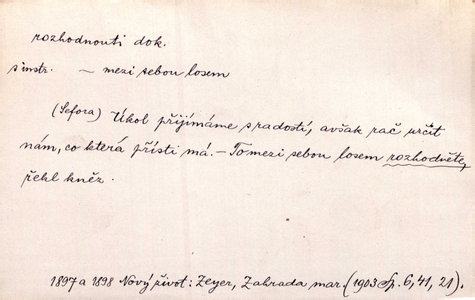 rozhodnouti dok.
s instr. — mezi sebou losem
(Sefora) Úkol přijímáme s radostí, avšak rač určit
nám, co která přísti má. — To mezi sebou losem rozhodněte,
řekl kněz.
1897 a 1898 Nový život: Zeyer, Zahrada mar. (1903 Sp. 6, 41, 21).